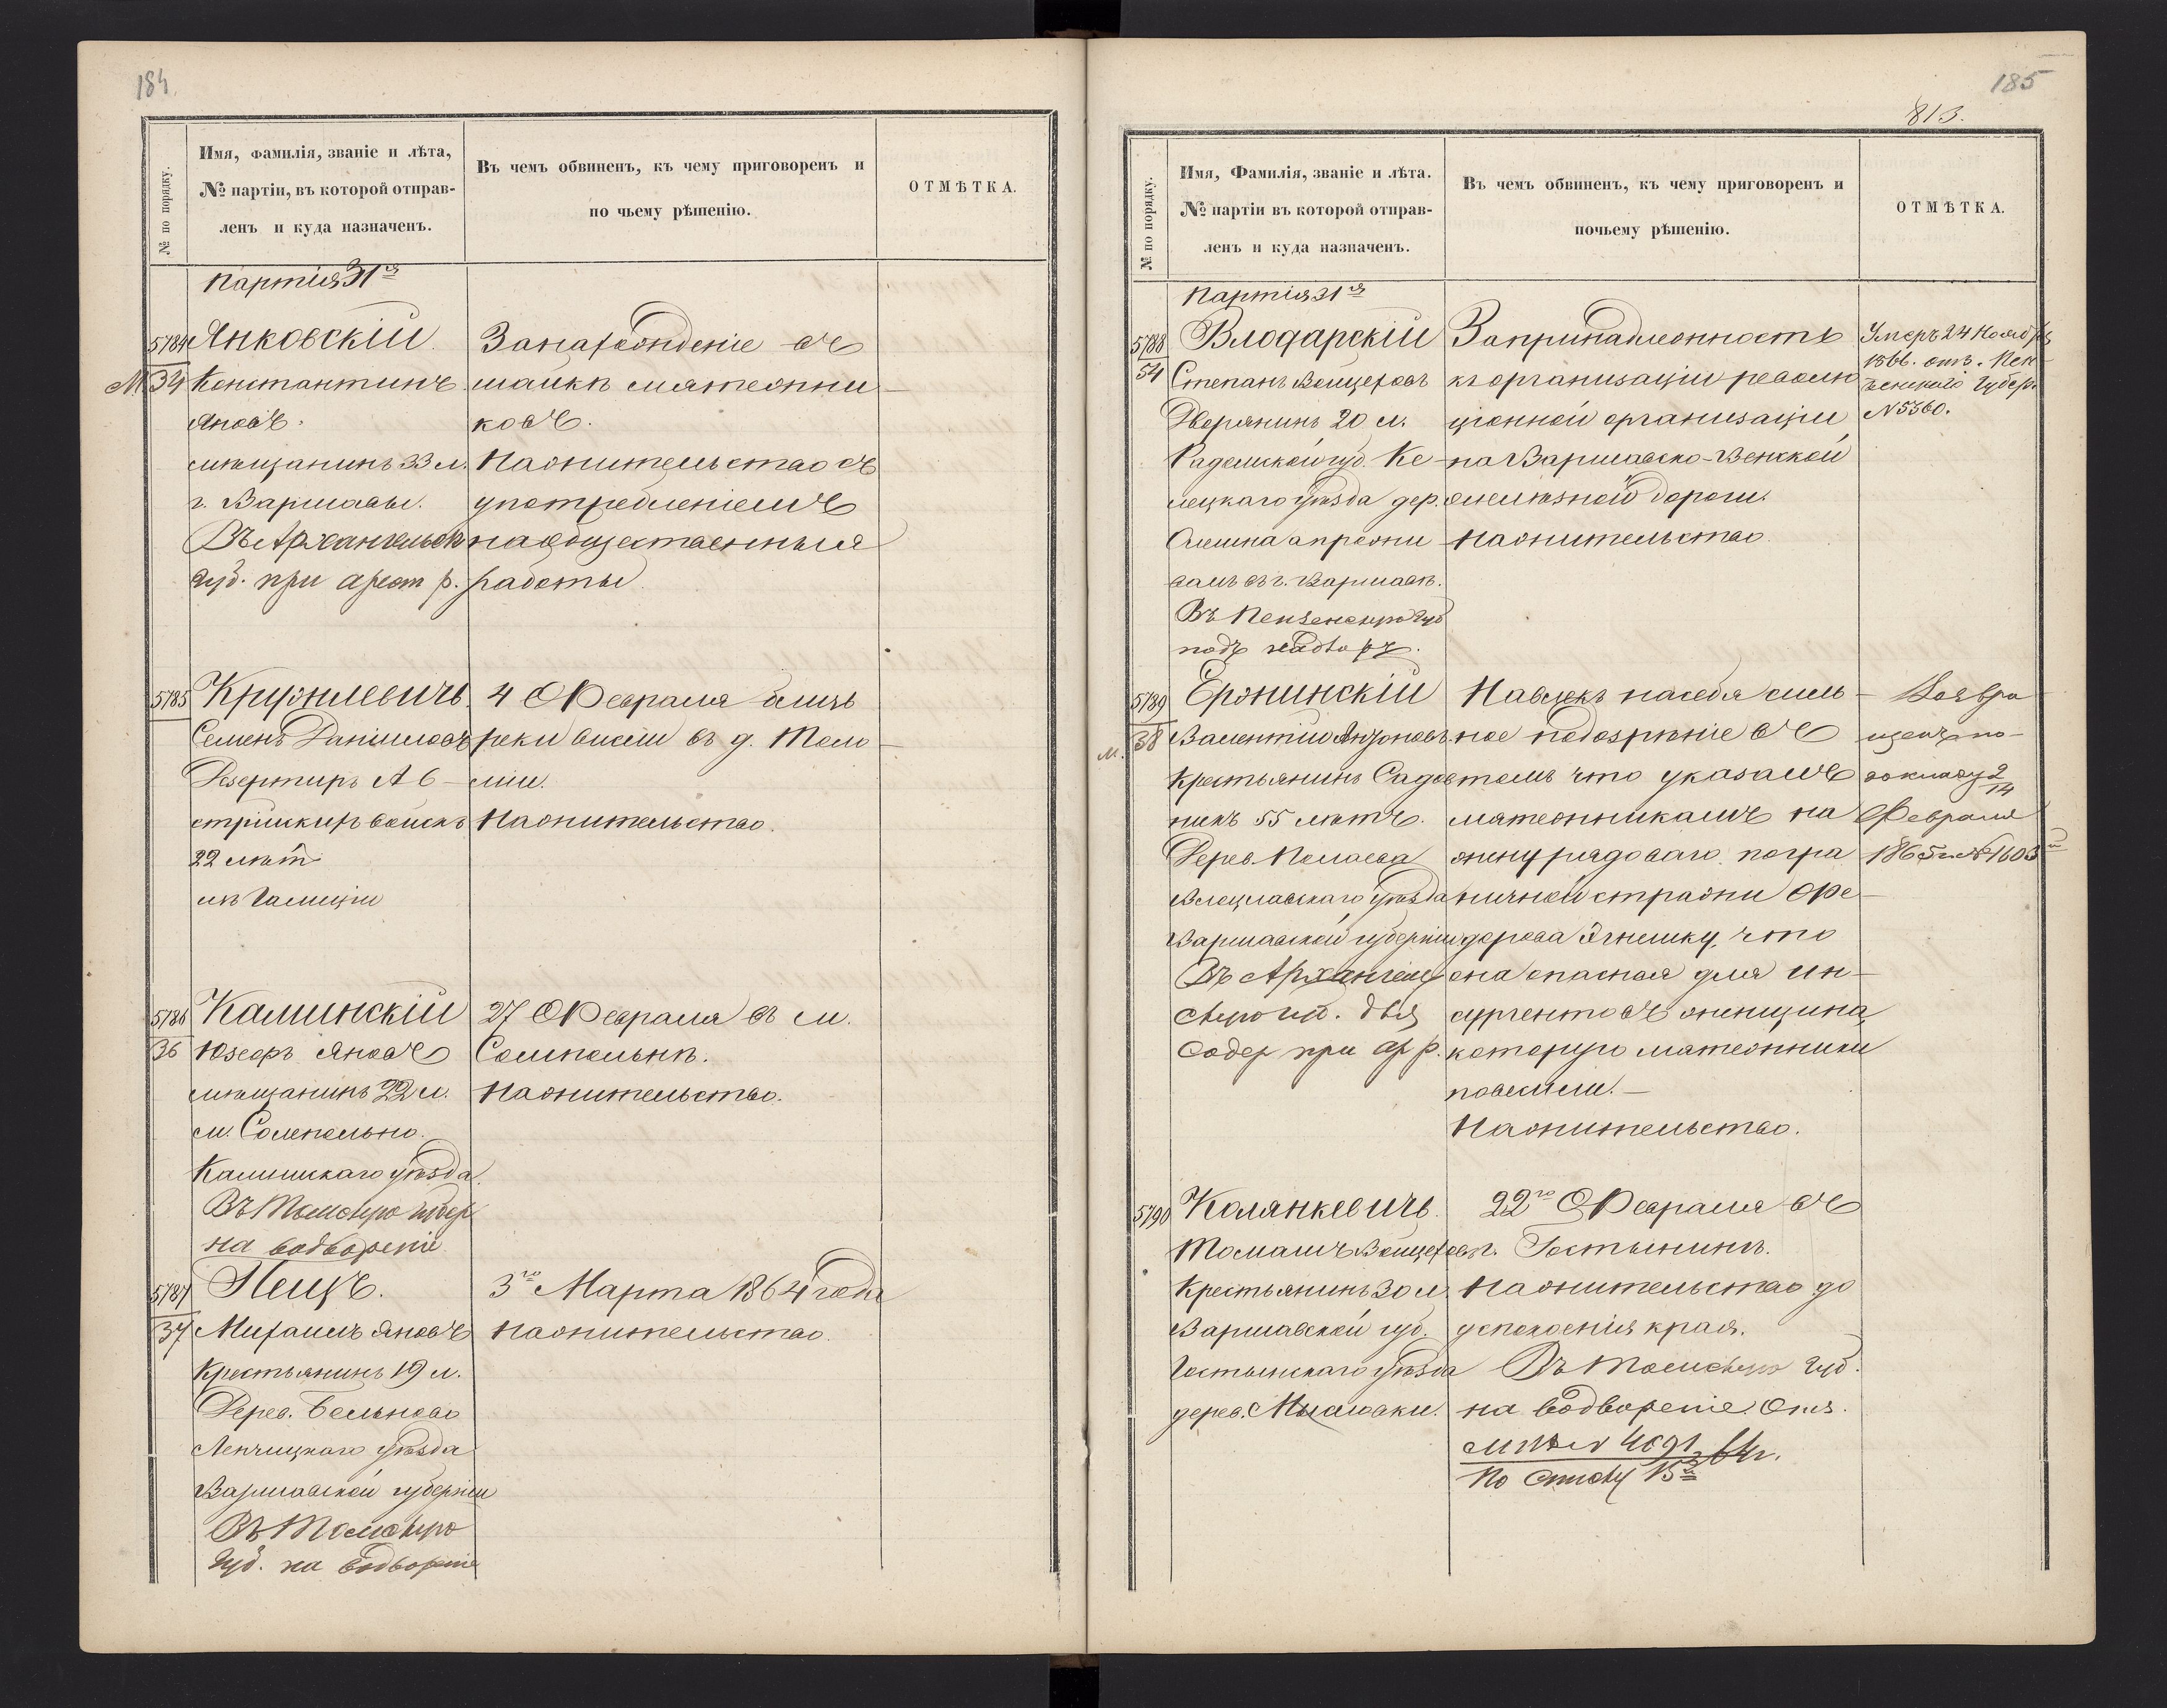 184.
№ по порядку.
Имя, фамилія, званіе и лѣта,
№ партіи, въ которой отправ-
ленъ и куда назначенъ.
Въ чемъ обвиненъ, къ чему приговоренъ и
по чьему рѣшенію.
ОТМѢТКА.
Партія 31я
5784
М. 34
Янковскій
Константинъ
Яновъ.
мѣщанинъ 33 л.
г. Варшавы.
Въ Архангельск
губ. при арест р.
За нахожденіе въ
шайкѣ мятежни-
ковъ.
На жительство съ
употребленіемъ
на общественныя
работы
5785
Семенъ Даниловъ
Дезертиръ Ав-
стрійскихъ войскъ
22 лѣт
изъ Галиціи
4 Февраля близь
реки Вислы въ д.
На жительство.
5786
36
Калинскій
Юзефъ Яновъ
мѣщанинъ 22 л.
м. Соленольно.
Калишскаго уѣзда.
Въ Томскую губер
на водвореніе
27 Февраля въ м.
Сомпольнѣ.
На жительство.
5787
37
Пецъ.
Михаилъ Яновъ
Крестьянинъ 19 л.
Дерев.
Ленчицкаго уѣзда
Варшавской губерніи
Въ Томскую
губ. на водвореніе
3го Марта 1864 года
на жительство.
185
813.
№ по порядку.
Имя, Фамилія, званіе и лѣта.
№ партіи въ которой отправ-
ленъ и куда назначенъ.
Въ чемъ обвиненъ, къ чему приговоренъ и
почьему рѣшенію.
ОТМѢТКА.
Партія 31я
5788
54
Влодарскій
Степанъ Войцеховъ
Дворянинъ 20 л.
Радомской губ. Ке-
лецкаго уѣзда дер.
а прожи
валъ въ г. Варшавѣ.
Въ Пензенскую губ
подъ надзоръ.
За принадлежность
къ организаціи револю
ціонной организаціи
на Варшавско-Венской
желѣзной дороги.
На жительство.
Умеръ 24 Ноября
1866. отн. Пен
зенскаго Губер.
№ 5360.
5789
М. 38
Ержинскій
Валентій Янховъ
Крестьянинъ Садов
никъ 55 лѣтъ.
Дерев.
Влоцлавскаго уѣзда
Варшавской губерніи
Въ Архангель
скую губ. для
содер при ар р.
Навлекъ на себя силь-
ное подозрѣніе въ
томъ что указалъ
мятежникамъ на
жену рядоваго погра
ничной стражи Фе-
дорова Агнешку, что
она опасная для ин-
сургентовъ женщина,
которую мятежники
повесили.—
На жительство.
Возвра
щенъ по
докладу 2/14
Февраля
1865 г. № 1603
5790
Колянкевичъ.
Томашъ Войцеховъ
Крестьянинъ 30 л.
Варшавской губ.
Гостынскаго уѣзда
дерев.
22го Февраля въ
г. Гостынинѣ.
На жительство до
успокоенія края.
Въ Томскую губ.
на водвореніе. Отн.
64 г.
По списку 15й